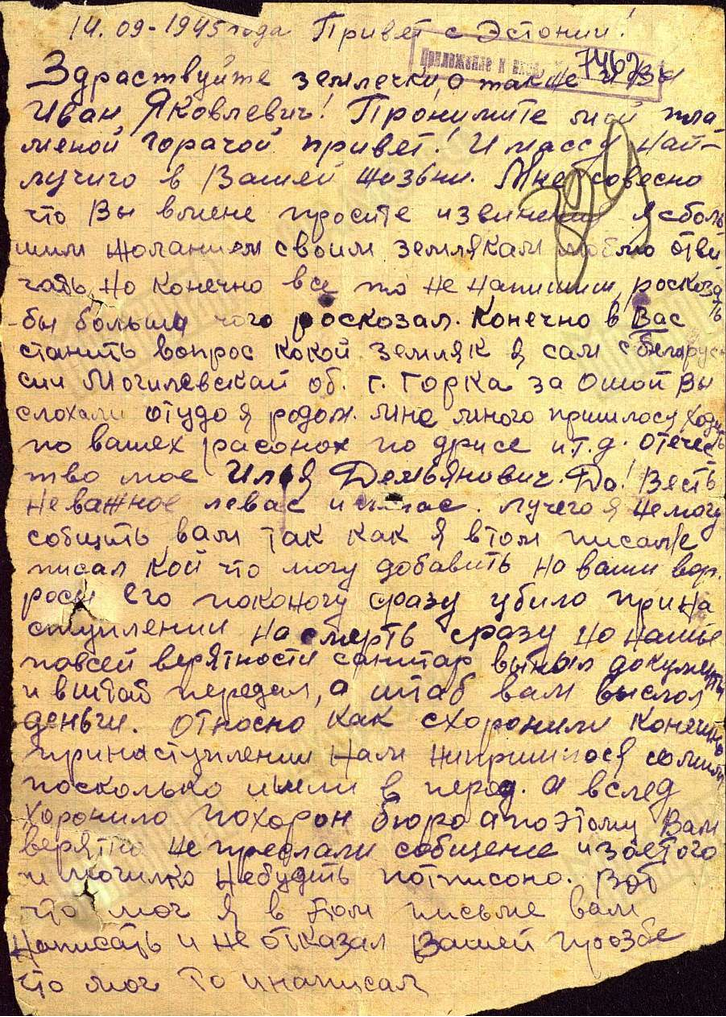 14.09-1945 года Привет с Эстонии!
Приложение к вход. 7462
Здраствуйте землечки, а также и Вы
Иван Яковлевич! Пронимите мой пла
меной горачой привет! И массу най-
лучиго в Вашей жизьни. Мне совесно
что Вы вмене просите извинения я сболь
шим жоланием своим землякам отви
чать, но конечно все то не напишиш, росказа
-бы больши чого росказал. Конечно в Вас ть
станить вопрос кокой земляк я сам с Беларус
сии Могилевской об. г. Горка за Ошой Вы
слохали отудо я родом. Мне много пришлосу ходит
по вашех расонах по дрисе и т.д. отечес
тво мое Илья Демьянович. Да! Весть
не важное левас и снас. лучего я не могу
собщить вам так как я втом писме
писал кой что могу добавить на ваши воп.
росы его поконогу сразу убило прина
ступлении на смерть сразу но нашь
павсей верятности санитар вынял документы
и вштаб передал, а штаб вам выслол
деньги. Относно как схоронили конечить
принаступлении нам непришлося самим
посколько ишли в перод. А вслед
хоронило похорон бюро апоэтому Вам
верятно не преслали собщение изаетого
и могилко небудить потписоно. Вот
что мог я в этом письме вам
написать и не отказал Вашей прозбе
что мог то инаписал